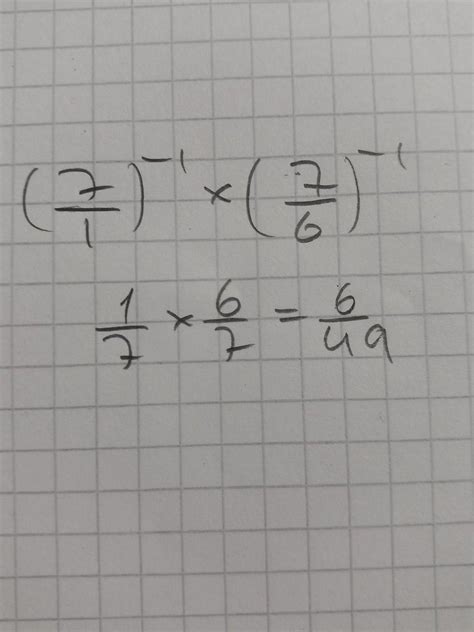 (7/1)^-1 × (7/6)^-1
1/7 × 6/7 = 6/49